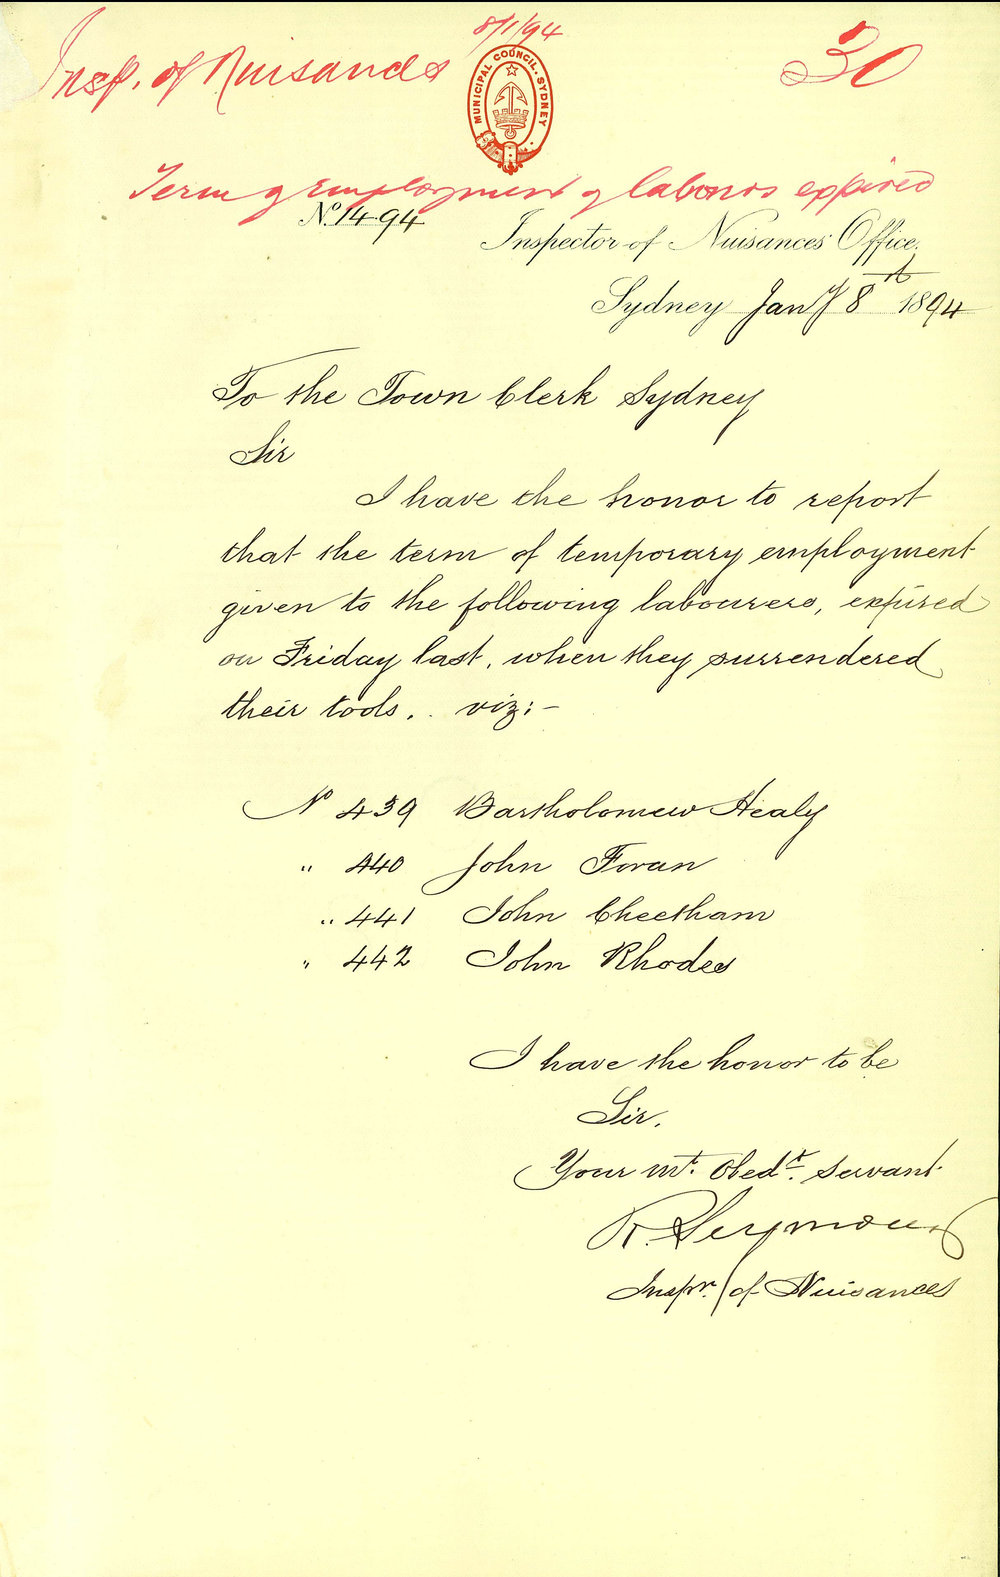 8/1/94
Insp. of Nuisances
30
MUNICIPAL COUNCIL. SYDNEY
Term of Employment of labours expired
No. 14-94
Inspector of Nuisances Office,
Sydney Jany 8st 1894
To the Town Clerk Sydney
Sir
I have the honor to report
that the term of temporary employment
given to the following labourers, expired
on Friday last, when they surrendered
their tools.. viz:-
No 439 Bartholomew Healy
" 440 John Foran
" 441 John Cheetham
" 442 John Rhodes
I have the honor to be
Sir.
Your mt. Obedt. servant
R. Seymour
Inspr. of Nuisances